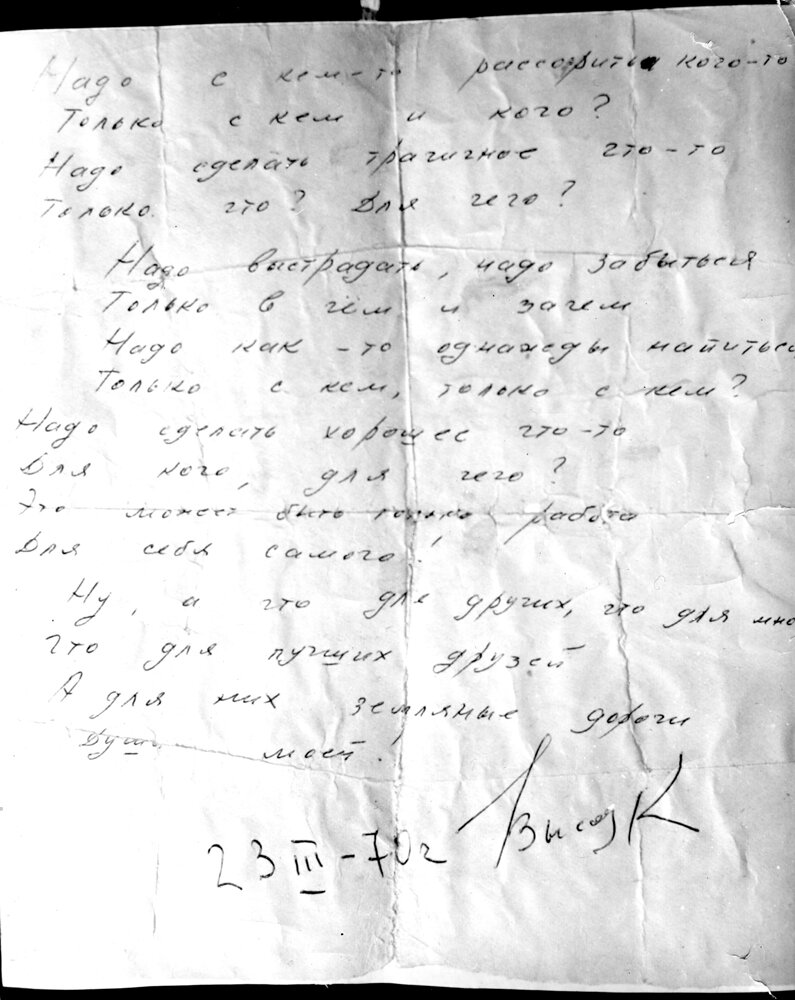 Надо с кем-то рассорить кого-то
Только с кем и кого?
Надо сделать трагичное что-то
Только что? Для чего?
Надо выстрадать, надо забыться
Только в чем и зачем
Надо как-то однажды напиться
Только с кем, только с кем?
Надо сделать хорошее что-то
Для кого, для чего?
Это может быть только работа
Для себя самого!
Ну, а что для других, что для мно
Что для лучших друзей
А для них земляные дороги
Души моей!
23 III-70г